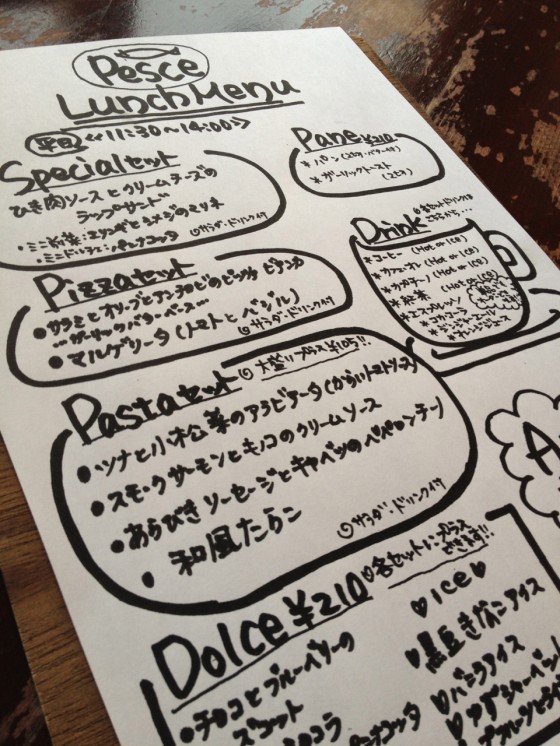 Pesce
Lunch Menu
平日 <<11:30〜14:00>>
Specialセット
ひき肉ソースとクリームチーズの
ラップサンド
・ミニ前菜:エリンギと
・ミニドルチェ:パンナコッタ
サラダ・ドリンク付
Pane ¥210
* パン
* ガーリックトースト
Drink
各セットドリンクは
こちらから…
* コーヒー (Hot or ICE)
* カフェオレ (Hot or ICE)
* (Hot or ICE)
* 紅茶 (Hot or ICE)
* エスプレッソ
* コカコーラ
* ジンジャーエール
* オレンジジュース
Pizzaセット
・サラミとオリーブとアンチョビのピッツァ ビアンカ
…ガーリックバターベース…
・マルゲリータ(トマトとバジル)
サラダ・ドリンク付
Pastaセット
大盛りプラス¥105!!
・ツナと小松菜のアラビアータ(からいトマトソース)
・スモークサーモンとキノコのクリームソース
・あらびきソーセージとキャベツのペペロンチーノ
・和風たらこ
サラダ・ドリンク付
Dolce ¥210
各セットにプラス
できます!!
・チョコとブルーベリーの
ズコット
パンナコッタ
♡ice♡
♡黒豆きなこアイス
♡バニラアイス
♡ゆずシャーベット
A